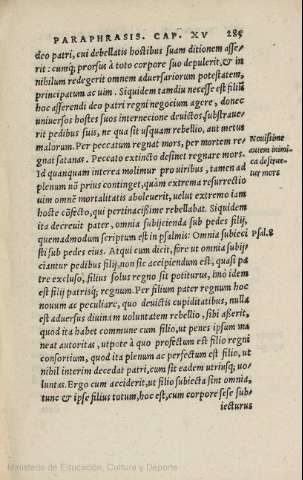 PARAPHRASIS. CAP. XV 285
deo patri, cui debellatis hostibus suam ditionem asse-
rit: cumq; prorsus à toto corpore suo depulerit, & in
nihilum redegerit omnem adversariorum potestatem,
principatum ac uim. Siquidem tamdiu necesse est filiũ
hoc asserendi deo patri regni negocium agere, donec
universos hostes suos internecione deuictos, substraue-
rit pedibus suis, ne qua sit usquam rebellio, aut metus
malorum. Per peccatum regnat mors, per mortem re-
gnat satanas. Peccato extincto desinet regnare mors.
Id quanquam interea molimur pro uiribus, tamen ad
plenum nõ prius continget, quàm extrema resurrectio
uim omnẽ mortalitatis aboleuerit, uelut extremo iam
hoste cõfecto, qui pertinacißime rebellabat. Siquidem
ita decreuit pater, omnia subijcienda sub pedes filij,
quemadmodum scriptum est in psalmis: Omnia subieci
sti sub pedes eius. Atqui cum dicit, fore ut omnia subij-
ciantur pedibus filij, non sic accipiendum est, quasi pa
tre excluso, filius solus regno sit potiturus, imò idem
est filij patrisq; regnum. Per filium pater regnum hoc
nouum ac peculiare, quo deuictis cupiditatibus, nulla
est aduersus diuinam uoluntatem rebellio, sibi aßerit,
quod ita habet commune cum filio, ut penes ipsum ma
neat autoritas, utpote à quo profectum est filio regni
consortium, quod ita plenum ac perfectum est filio, ut
nihil interim decedat patri, cum sit eadem utriusq; uo-
luntas. Ergo cum acciderit, ut filio subiecta sint omnia,
tunc & ipse filius totum, hoc est, cum corpore sese sub-
iecturus
Nouissime
autem inimi-
ca destrue-
tur mors
Psal.8
Ministerio de Educación, Cultura y Deporte